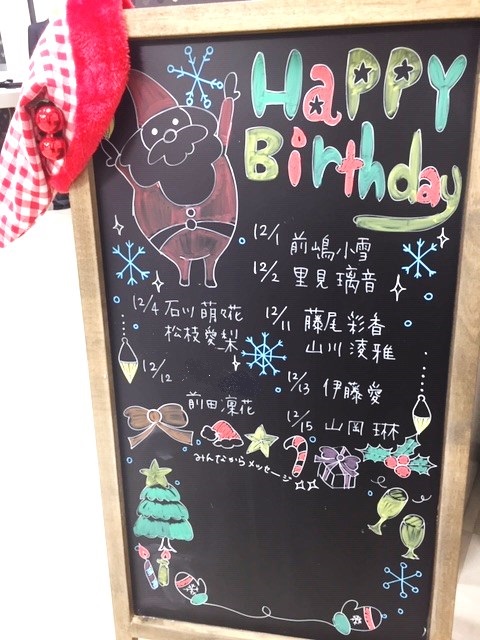 HAPPY
Birthday
12/1 前嶋小雪
12/2 里見璃音
12/4 石川萌々花
松枝愛梨
12/11 藤尾彩香
山川湊雅
12/12
前田凜花
12/13 伊藤愛
12/15 山岡琳
みんなからメッセージ